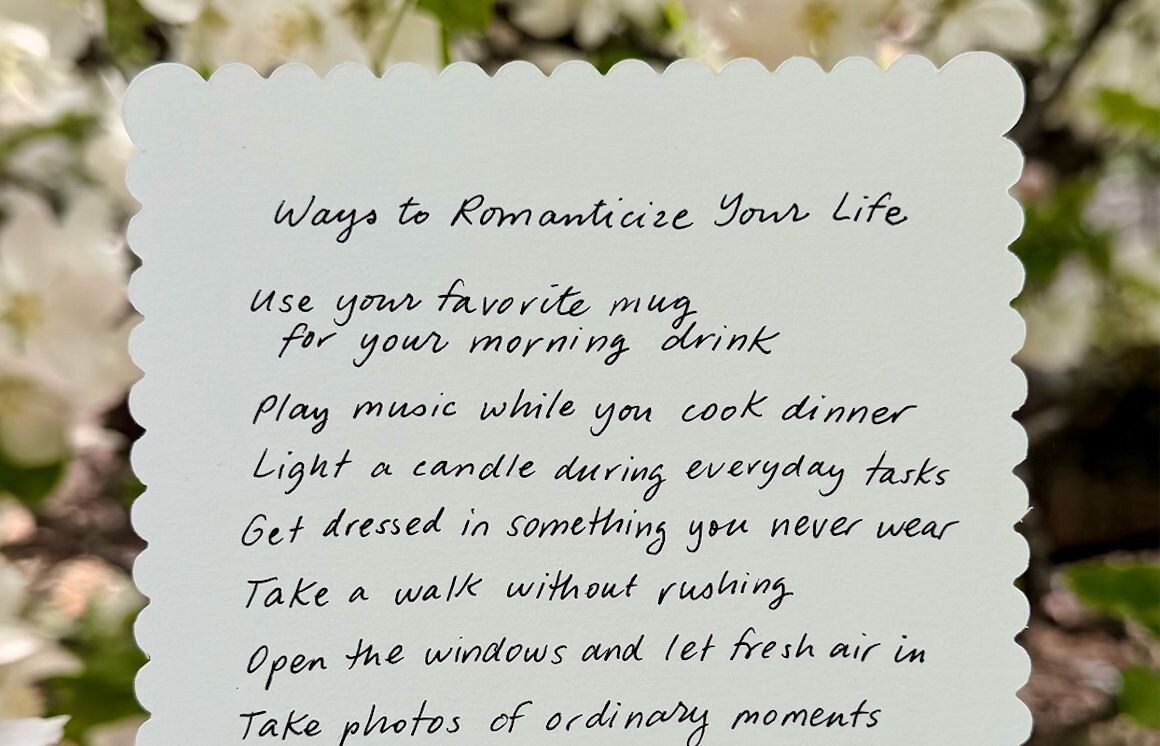 Ways to Romanticize Your Life
Use your favorite mug
for your morning drink
Play music while you cook dinner
Light a candle during everyday tasks
Get dressed in something you never wear
Take a walk without rushing
Open the windows and let fresh air in
Take photos of ordinary moments